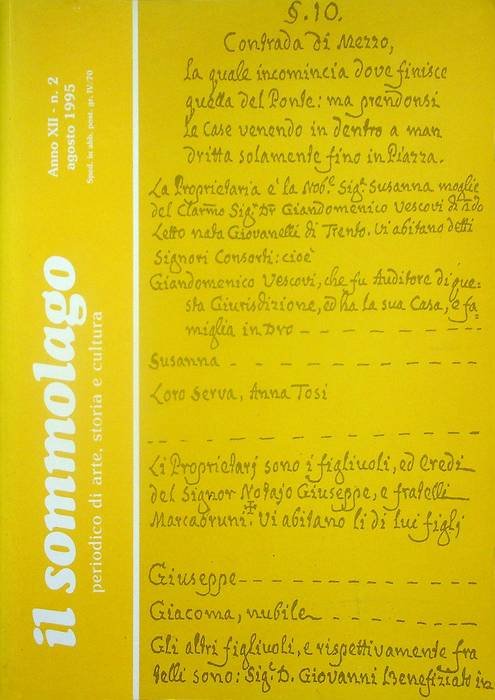 il sommolago
periodico di arte, storia e cultura
Anno XII - n. 2
agosto 1995
Sped. in abb. post. gr. IV/70
§. 10.
Contrada di Mezzo,
la quale incomincia dove finisce
quella del Ponte: ma prendonsi
le Case venendo in dentro a man
dritta solamente fino in Piazza.
La Proprietaria è la Nob.e Sig.a Susanna moglie
del Clarmo Sig.r Dr Giandomenico Vescovi di
Letto nata Giovanelli di Trento. Vi abitano detti
Signori Consorti: cioè
Giandomenico Vescovi, che fu Auditore di que-
sta Giurisdizione, ed ha la sua Casa, e fa-
miglia in Dro
Susanna
Loro Serva, Anna Tosi
Li Proprietarj sono i figliuoli, ed Eredi
del Signor Notajo Giuseppe, e fratelli
Marcabruni. Vi abitano li di lui figlj
Giuseppe
Giacoma, nubile
Gli altri figliuoli, e rispettivamente fra
telli sono: Sig.r D. Giovanni Benefiziato in